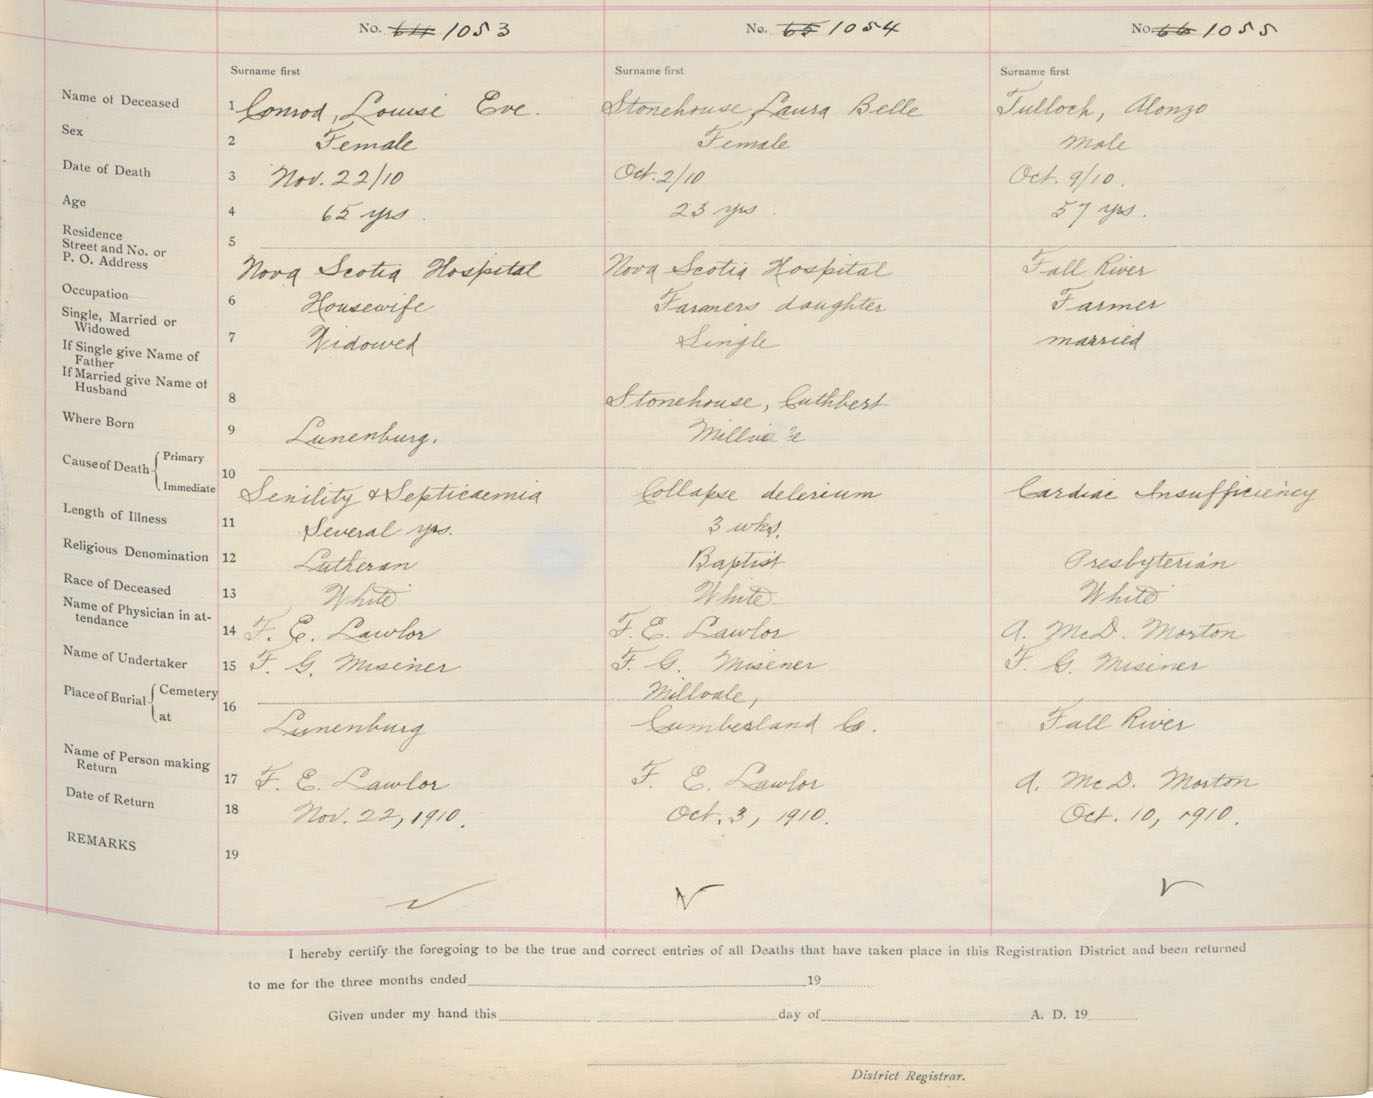 No. 64 1053 No. 65 1054 No. 66 1055
Surname first Surname first Surname first
Name of Deceased 1 Conrod, Louise Eve. Stonehouse, Laura Belle Tulloch, Alonzo
Sex 2 Female Female Male
Date of Death 3 Nov. 22/10 Oct. 2/10 Oct. 9/10.
Age 4 65 yrs. 23 yrs. 57 yrs.
Residence
Street and No. or 5
P. O. Address Nova Scotia Hospital Nova Scotia Hospital Fall River
Occupation 6 Housewife Farmers daughter Farmer
Single, Married or
Widowed 7 Widowed Single married
If Single give Name of
Father
If Married give Name of
Husband 8 Stonehouse, Cuthbert
Where Born 9 Lunenburg.
Cause of Death Primary
Immediate 10 Senility & Septicaemia Collapse delerium Cardiac Insufficiency
Length of Illness 11 Several yrs. 3 wks.
Religious Denomination 12 Lutheran Baptist Presbyterian
Race of Deceased 13 White White White
Name of Physician in at-
tendance 14 F. E. Lawlor F. E. Lawlor A. McD. Morton
Name of Undertaker 15 F. G. Misener F. G. Misener F. G. Misener
Place of Burial Cemetery 16 Millvale,
at Lunenburg Cumberland Co. Fall River
Name of Person making
Return 17 F. E. Lawlor F. E. Lawlor A. McD. Morton
Date of Return 18 Nov. 22, 1910. Oct. 3, 1910. Oct. 10, 1910.
REMARKS 19
I hereby certify the foregoing to be the true and correct entries of all Deaths that have taken place in this Registration District and been returned
to me for the three months ended 19
Given under my hand this day of A. D. 19
District Registrar.